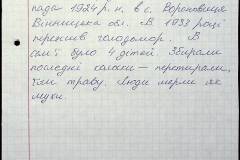 пада 1924 р. н. в с. Вороновиця
Вінницька обл. В 1933 році
пережив голодомор. В
сім'ї було 4 дітей. Збирали
последні колоски — перетирали,
їли траву. Люди мерли як
мухи.